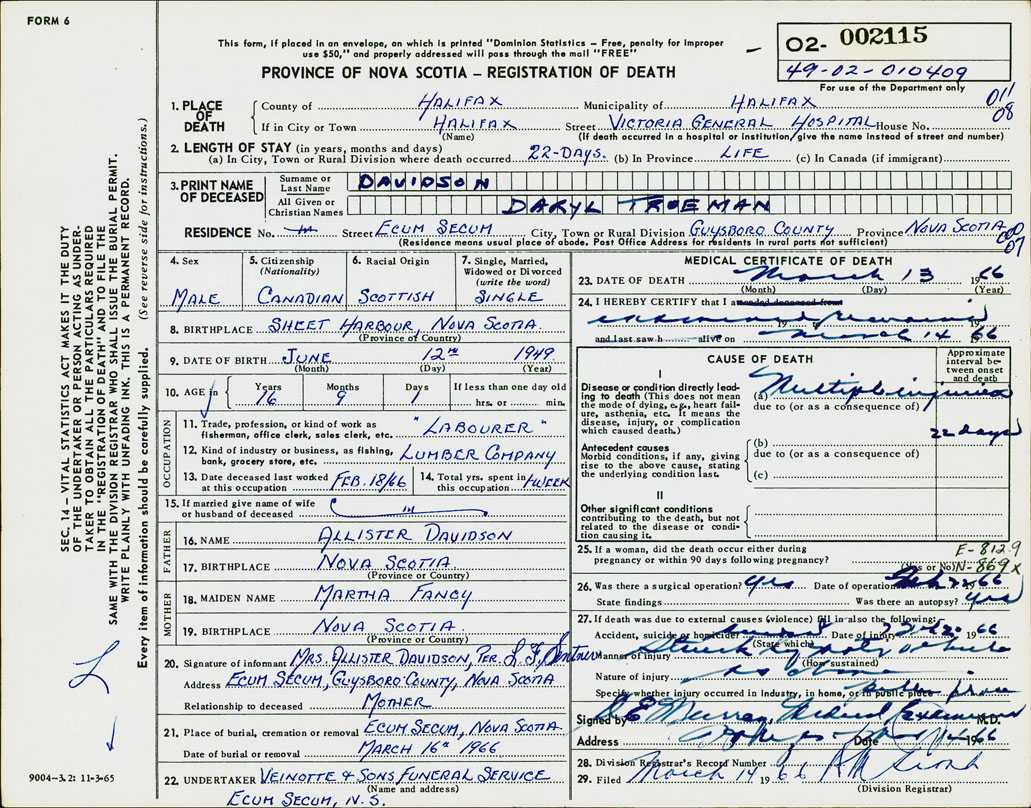 FORM 6
This form, if placed in an envelope, on which is printed "Dominion Statistics – Free, penalty for improper
use $50," and properly addressed will pass through the mail "FREE"
PROVINCE OF NOVA SCOTIA – REGISTRATION OF DEATH
02- 002115
49-02-010409
For use of the Department only
1. PLACE OF DEATH
County of HALIFAX Municipality of HALIFAX 011
If in City or Town HALIFAX Street VICTORIA GENERAL HOSPITAL House No. 08
(Name) (If death occurred in a hospital or institution, give the name instead of street and number)
2. LENGTH OF STAY (in years, months and days)
(a) In City, Town or Rural Division where death occurred 22-DAYS. (b) In Province LIFE (c) In Canada (if immigrant)
3. PRINT NAME OF DECEASED
Surname or Last Name DAVIDSON
All Given or Christian Names DARYL TRUEMAN
RESIDENCE No. Street ECUM SECUM City, Town or Rural Division GUYSBORO COUNTY Province NOVA SCOTIA
(Residence means usual place of abode. Post Office Address for residents in rural parts not sufficient)
07
4. Sex MALE
5. Citizenship (Nationality) CANADIAN
6. Racial Origin SCOTTISH
7. Single, Married, Widowed or Divorced (write the word) SINGLE
8. BIRTHPLACE SHEET HARBOUR, NOVA SCOTIA.
(Province or Country)
9. DATE OF BIRTH JUNE 12TH 1949
(Month) (Day) (Year)
10. AGE in Years Months Days If less than one day old
16 9 1 hrs. or min.
OCCUPATION
11. Trade, profession, or kind of work as
fisherman, office clerk, sales clerk, etc. "LABOURER"
12. Kind of industry or business, as fishing,
bank, grocery store, etc. LUMBER COMPANY
13. Date deceased last worked at this occupation FEB. 18/66
14. Total yrs. spent in this occupation 1 WEEK
15. If married give name of wife
or husband of deceased
FATHER
16. NAME ALLISTER DAVIDSON
17. BIRTHPLACE NOVA SCOTIA.
(Province or Country)
MOTHER
18. MAIDEN NAME MARTHA FANCY
19. BIRTHPLACE NOVA SCOTIA.
(Province or Country)
20. Signature of informant MRS. ALLISTER DAVIDSON, PER. L. F.
Address ECUM SECUM, GUYSBORO COUNTY, NOVA SCOTIA
Relationship to deceased MOTHER
21. Place of burial, cremation or removal ECUM SECUM, NOVA SCOTIA.
Date of burial or removal MARCH 16TH 1966
22. UNDERTAKER VEINOTTE & SONS FUNERAL SERVICE
(Name and address)
ECUM SECUM, N.S.
MEDICAL CERTIFICATE OF DEATH
23. DATE OF DEATH March 13 1966
(Month) (Day) (Year)
24. I HEREBY CERTIFY that I attended deceased from
examined remains 19 19
and last saw h alive on March 14 1966
CAUSE OF DEATH
Approximate interval between onset and death
I
Disease or condition directly leading to death (This does not mean the mode of dying, e.g., heart failure, asthenia, etc. It means the disease, injury, or complication which caused death.)
(a) Multiple injuries
due to (or as a consequence of)
22 days
Antecedent causes
Morbid conditions, if any, giving rise to the above cause, stating the underlying condition last.
(b)
due to (or as a consequence of)
(c)
II
Other significant conditions
contributing to the death, but not related to the disease or condition causing it.
25. If a woman, did the death occur either during
pregnancy or within 90 days following pregnancy? (Yes or No)
E-812.9
N-869X
26. Was there a surgical operation? yes Date of operation Feb 22 1966
State findings Was there an autopsy? yes
27. If death was due to external causes (violence) fill in also the following:
Accident, suicide or homicide Date of injury 1966
(State which)
Manner of injury Struck by motor vehicle
(How sustained)
Nature of injury as above
Specify whether injury occurred in industry, in home, or in public place public place
Signed by D E Murray, Medical Examiner M.D.
Address Date 14 1966
28. Division Registrar's Record Number
29. Filed March 14 1966
(Division Registrar)
SEC. 14 – VITAL STATISTICS ACT MAKES IT THE DUTY
OF THE UNDERTAKER OR PERSON ACTING AS UNDER-
TAKER TO OBTAIN ALL THE PARTICULARS REQUIRED
IN THE "REGISTRATION OF DEATH" AND TO FILE THE
SAME WITH THE DIVISION REGISTRAR WHO SHALL ISSUE THE BURIAL PERMIT.
WRITE PLAINLY WITH UNFADING INK. THIS IS A PERMANENT RECORD.
Every item of information should be carefully supplied. (See reverse side for instructions.)
9004-3.2: 11-3-65